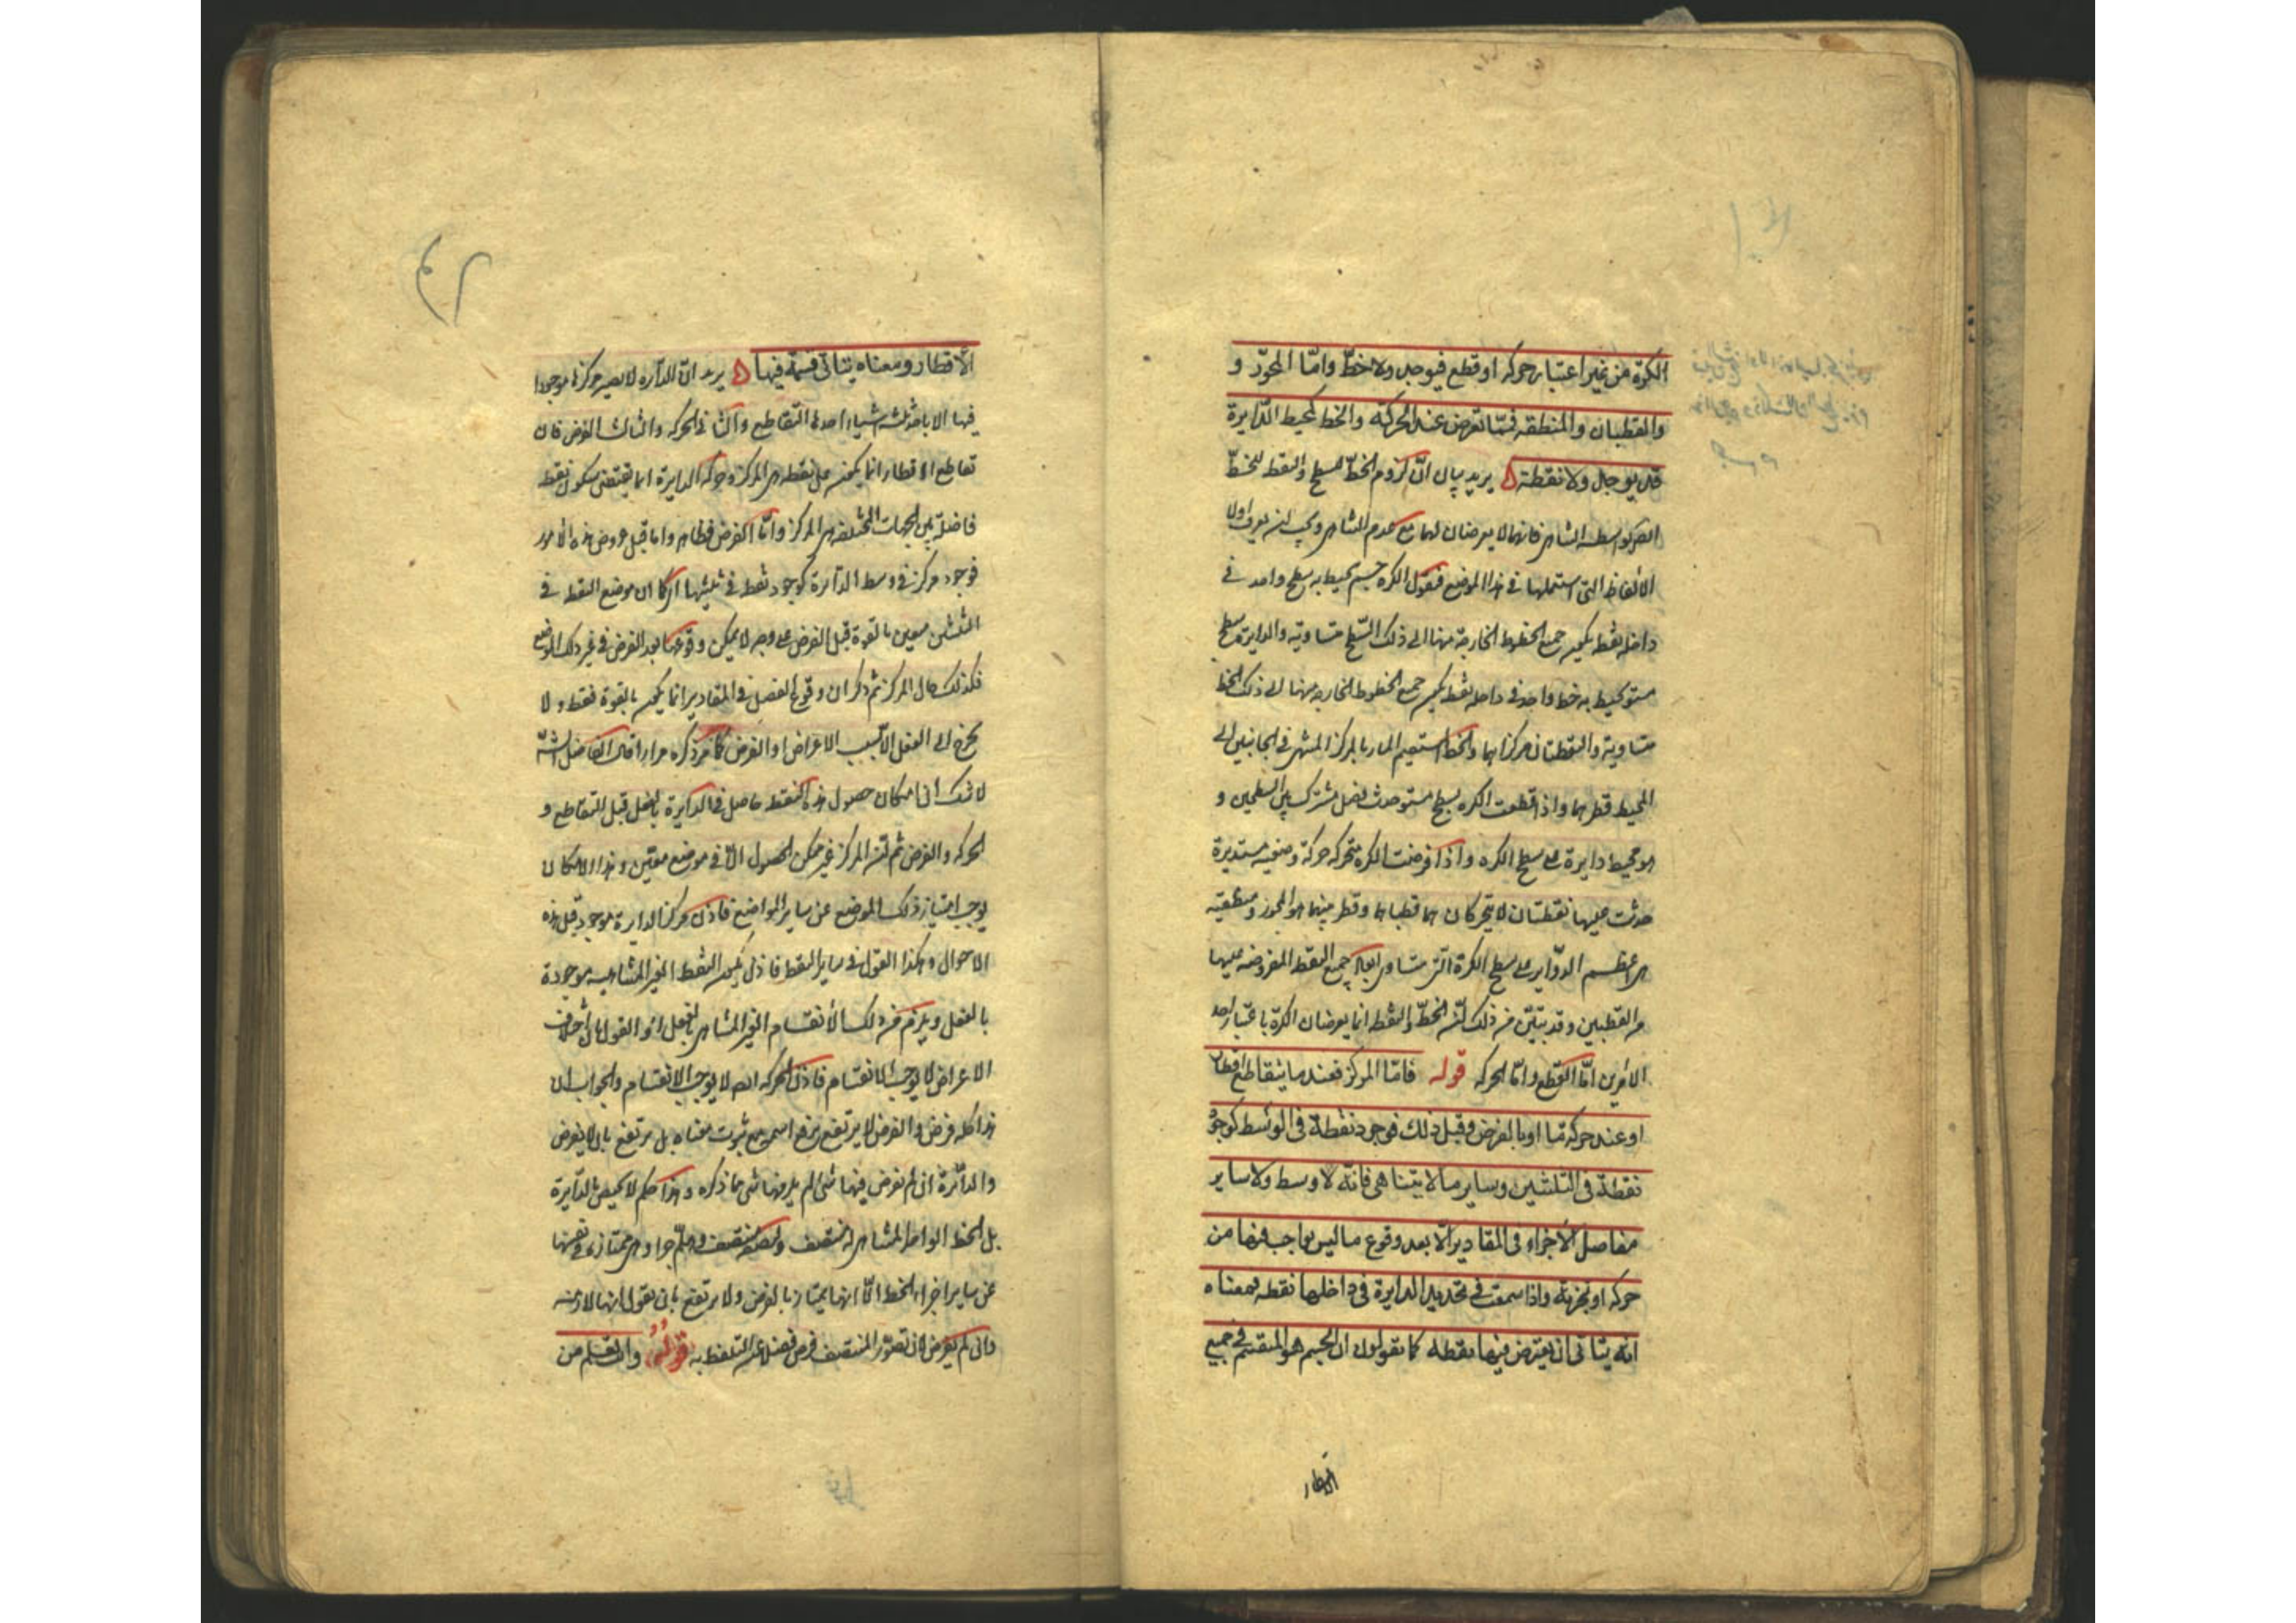 الكرة من غير اعتبار حركه او قطع فيوجد ولا خطّ وامّا المحوّر و
والقطبان والمنطقه فمّما تعرض عند الحركة والخط كمحيط الدّايرة
قد يوجد ولا نقطة يريد بيان انّ لزوم الخطّ للسطح والنقط للخطّ
انما هو بواسطه التناهى فانهما لا يعرضان لهما مع عدم التناهى ويجب ان يعرف اولا
الالفاظ التى استعملها فى هذا الموضع فنقول الكره جسم يحيط به سطح واحد فى
داخله نقطه يكون جميع الخطوط الخارجة منها الى ذلك السّطح متساويه والدايرة سطح
مستو يحيط به خط واحد فى داخله نقطه يكون جميع الخطوط الخارجه منها الى ذلك الخط
متساوية والنقطتان مركزاهما والخط المستقيم المار بالمركز المنتهى فى الجانبين الى
المحيط قطرهما واذا قطعت الكره بسطح مستو حدث فصل مشترك بين السطحين و
هو محيط دايرة على سطح الكره واذا فرضت الكره متحركه حركة وضعيه مستديرة
حدثت عليها نقطتان لا يتحركان هما قطباها وقطر بينهما هو المحور ومنطقته
هى اعظم الدوّاير على سطح الكرة التى تتساوى ابعاد جميع النقط المفروضه عليها
من القطبين وقد تبيّن من ذلك انّ الخطّ والنقطه انما يعرضان الكرة باعتبار احد
الامرين امّا القطع وامّا الحركه قوله فامّا المركز فعندما يتقاطع اقطار
او عند حركه مّا او بالفرض وقبل ذلك فوجود نقطة فى الوسط كوجود
نقطة فى الثلثين وساير ما لا يتناهى فانّه لا وسط ولا ساير
مفاصل الاجزاء فى المقادير الّا بعد وقوع ما ليس بواجب فيها من
حركه او تجزية واذا سمعت فى تحديد الدايرة فى داخلها نقطه فمعناه
انّه يتاتى ان يفترض فيها نقطه كما يقولون ان الجسم هو المنقسم فى جميع
الاقطار
الاقطار ومعناه يتاتّى قسمة فيها يريد انّ الدآيره لا يصير مركزها موجودا
فيها الا باحد ثلثه اشياء احدها التقاطع والثانى الحركه والثالث الفرض فان
تقاطع الاقطار انما يكون على نقطه هى المركز وحركه الدايرة انما يقتضى سكون نقطه
فاضلة بين الجهات المختلفه هى المركز وامّا الفرض فظاهر واما قبل عروض هذه الامور
فوجود مركز فى وسط الدآيرة كوجود نقط فى ثلثيها اى كما ان موضع النقط فى
الثلثين معين بالقوة قبل الفرض على وجه لا يمكن وقوعها بعد الفرض فى غير ذلك الموضع
فكذلك حال المركز ثم ذكر ان وقوع الفصل فى المقادير انما يكون بالقوة فقط ولا
يخرج الى الفعل الا بسبب الاعراض او الفرض كما مرّ ذكره مرارا قال الفاضل الشارح
لا شك ان امكان حصول هذه النقط حاصل فى الدايرة بالفعل قبل التقاطع و
الحركه والفرض ثم انّ المركز غير ممكن الحصول الّا فى موضع معيّن وهذا الامكان
يوجب امتياز ذلك الموضع عن ساير المواضع فاذن مركز الدايرة موجود قبل هذه
الاحوال وهكذا القول فى ساير النقط فاذن يكون النقط الغير المتناهيه موجودة
بالفعل ويلزم من ذلك الانقسام الغير المتناهى بالفعل او القول بان اختلاف
الاعراض لا يوجب الانقسام فاذن الحركه ايضا لا يوجب الانقسام والجواب ان
هذا كله فرض والفرض لا يرتفع برفع اسمه مع ثبوت معناه بل يرتفع بان لا يفرض
والدآئرة ان لم نفرض فيها شئ لم يلزمها شئ مما ذكره وهذا حكم لا يختص بالدآيرة
بل الخط الواحد المتناهى له منتصف ولنصفه منتصف وهلمّ جرا وهى ممتازة فى نفسها
عن ساير اجزاء الخط الّا انها تمتاز بالفرض ولا يرتفع بان نقول انها لازمه
وان لم يفرض لان تصوّر المنتصف فرض فضلا عن التلفظ به قوله وانت تعلم من